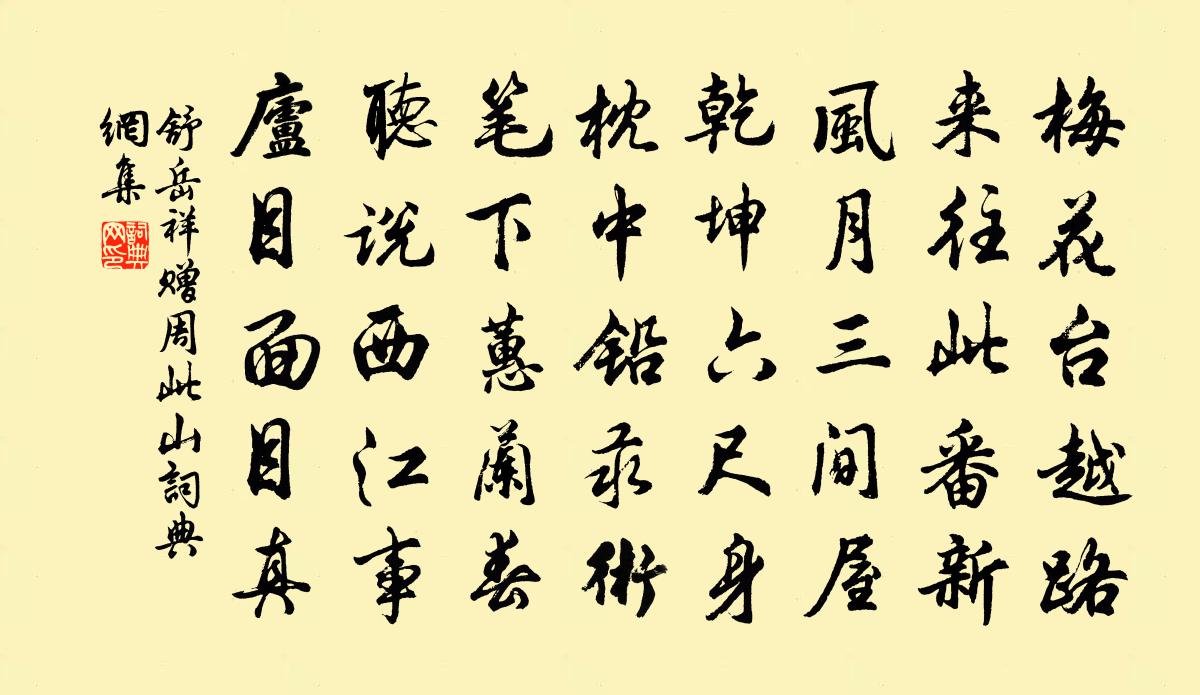 梅花台越路
来往此番新
風月三間屋
乾坤六尺身
枕中鉛汞術
笔下蕙蘭春
聽説西江事
廬目面目真
舒岳祥贈周此山詞典
網集
詞典网印